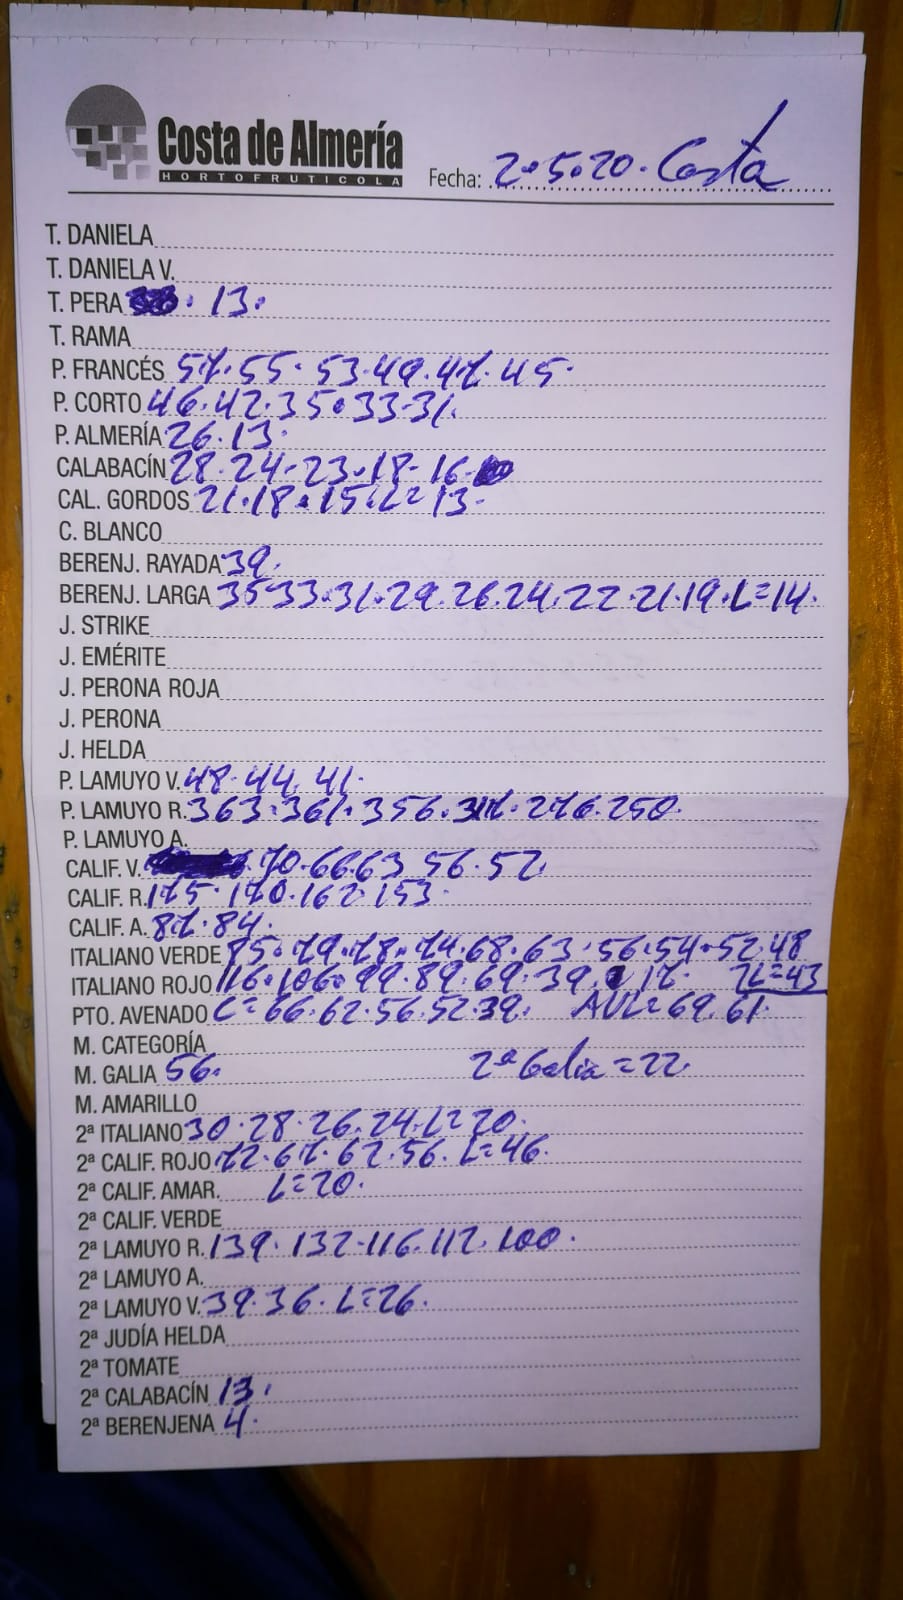 Costa de Almería
HORTOFRUTICOLA
Fecha: 2.5.20. Costa
T. DANIELA
T. DANIELA V.
T. PERA . 13.
T. RAMA
P. FRANCÉS 57.55.53.49.47.45.
P. CORTO 46.42.35.33-31.
P. ALMERÍA 26.13.
CALABACÍN 28.24-23.18-16.
CAL. GORDOS 21.18.15.L=13.
C. BLANCO
BERENJ. RAYADA 39.
BERENJ. LARGA 35-33.31.29.26.24.22.21.19.L=14.
J. STRIKE
J. EMÉRITE
J. PERONA ROJA
J. PERONA
J. HELDA
P. LAMUYO V. 48.44.41.
P. LAMUYO R. 363.361.356.317.276.250.
P. LAMUYO A.
CALIF. V. 70.66.63.56.52
CALIF. R. 175.170.162.153.
CALIF. A. 87.84.
ITALIANO VERDE 85.79.78.74.68.63.56.54.52.48
ITALIANO ROJO 116.106.99.89.69.39. 17. L=43
PTO. AVENADO C=66.62.56.52.39. AVL=69.61.
M. CATEGORÍA
M. GALIA 56. 2ª Galia=22.
M. AMARILLO
2ª ITALIANO 30.28.26.24.L=20.
2ª CALIF. ROJO 72.67.62.56.L=46.
2ª CALIF. AMAR. L=20.
2ª CALIF. VERDE
2ª LAMUYO R. 139.132-116.112.100.
2ª LAMUYO A.
2ª LAMUYO V. 39.36.L=26.
2ª JUDÍA HELDA
2ª TOMATE
2ª CALABACÍN 13.
2ª BERENJENA 4.